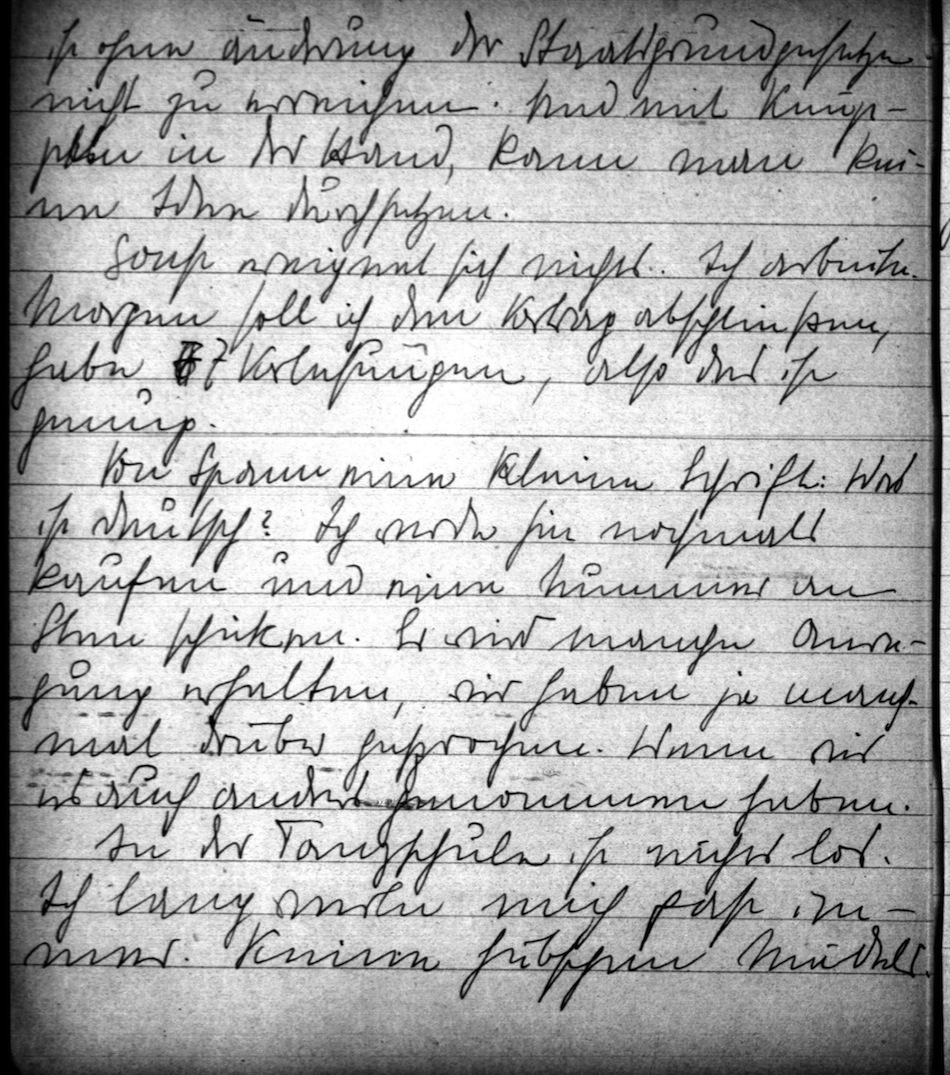 ist ohne änderung der Staatsgrundgesetze
nicht zu erreichen. Und mit Knüp-
peln in der Hand, kann man kei-
ne Idee durchsetzen.
Sonst ereignet sich nichts.. Ich arbeite.
Morgen soll ich den Vortrag abschließen,
habe 7 Vorlesungen, also das ist
genug.
Von Spann eine kleine Schrift: Was
ist deutsch? Ich werde sie nochmals
kaufen und eine Nummer an
Sten schicken. Er wird manche Anre-
gung erhalten, wir haben ja manch-
mal drüber gesprochen. Wenn wir
es auch anders genommen haben.
In der Tanzschule ist nichts los.
Ich langweile mich fast im-
mer. Keine hübschen Mädels.